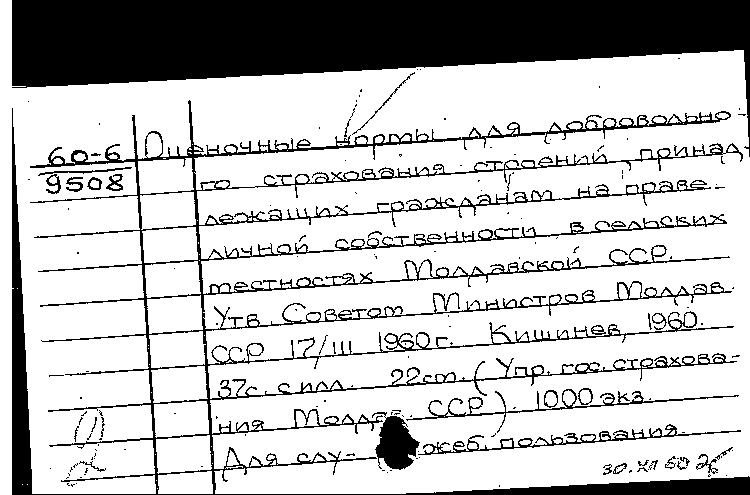 60-6
9508
Оценочные нормы для добровольно-
го страхования строений, принад-
лежащих гражданам на праве
личной собственности в сельских
местностях Молдавской ССР.
Утв. Советом Министров Молдав.
ССР 17/III 1960г. Кишинев, 1960.
37с. с илл. 22см. (Упр. гос. страхова-
ния Молдав. ССР). 1000 экз.
Для слу- жеб. пользования.
2